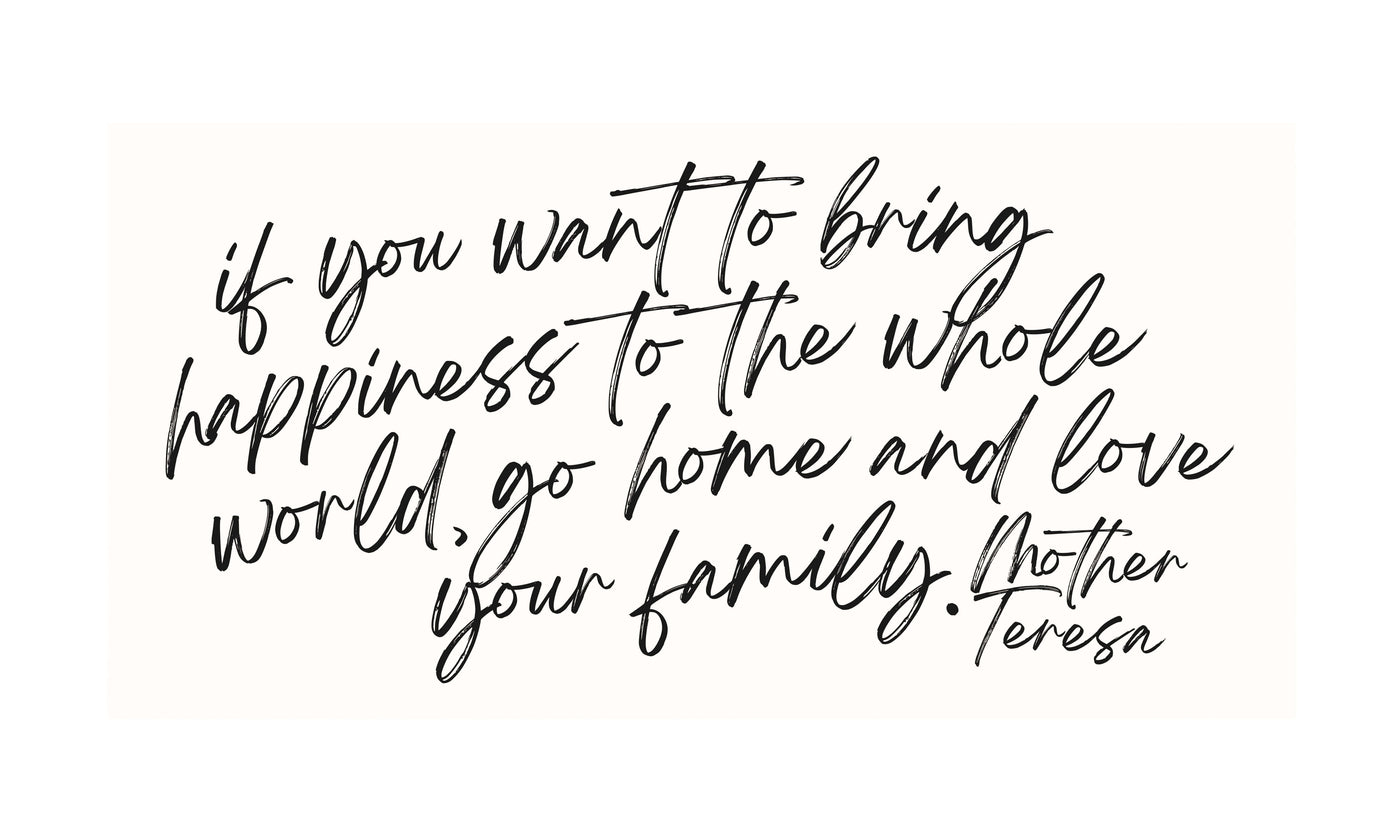 if you want to bring
happiness to the whole
world, go home and love
your family.
Mother
Teresa